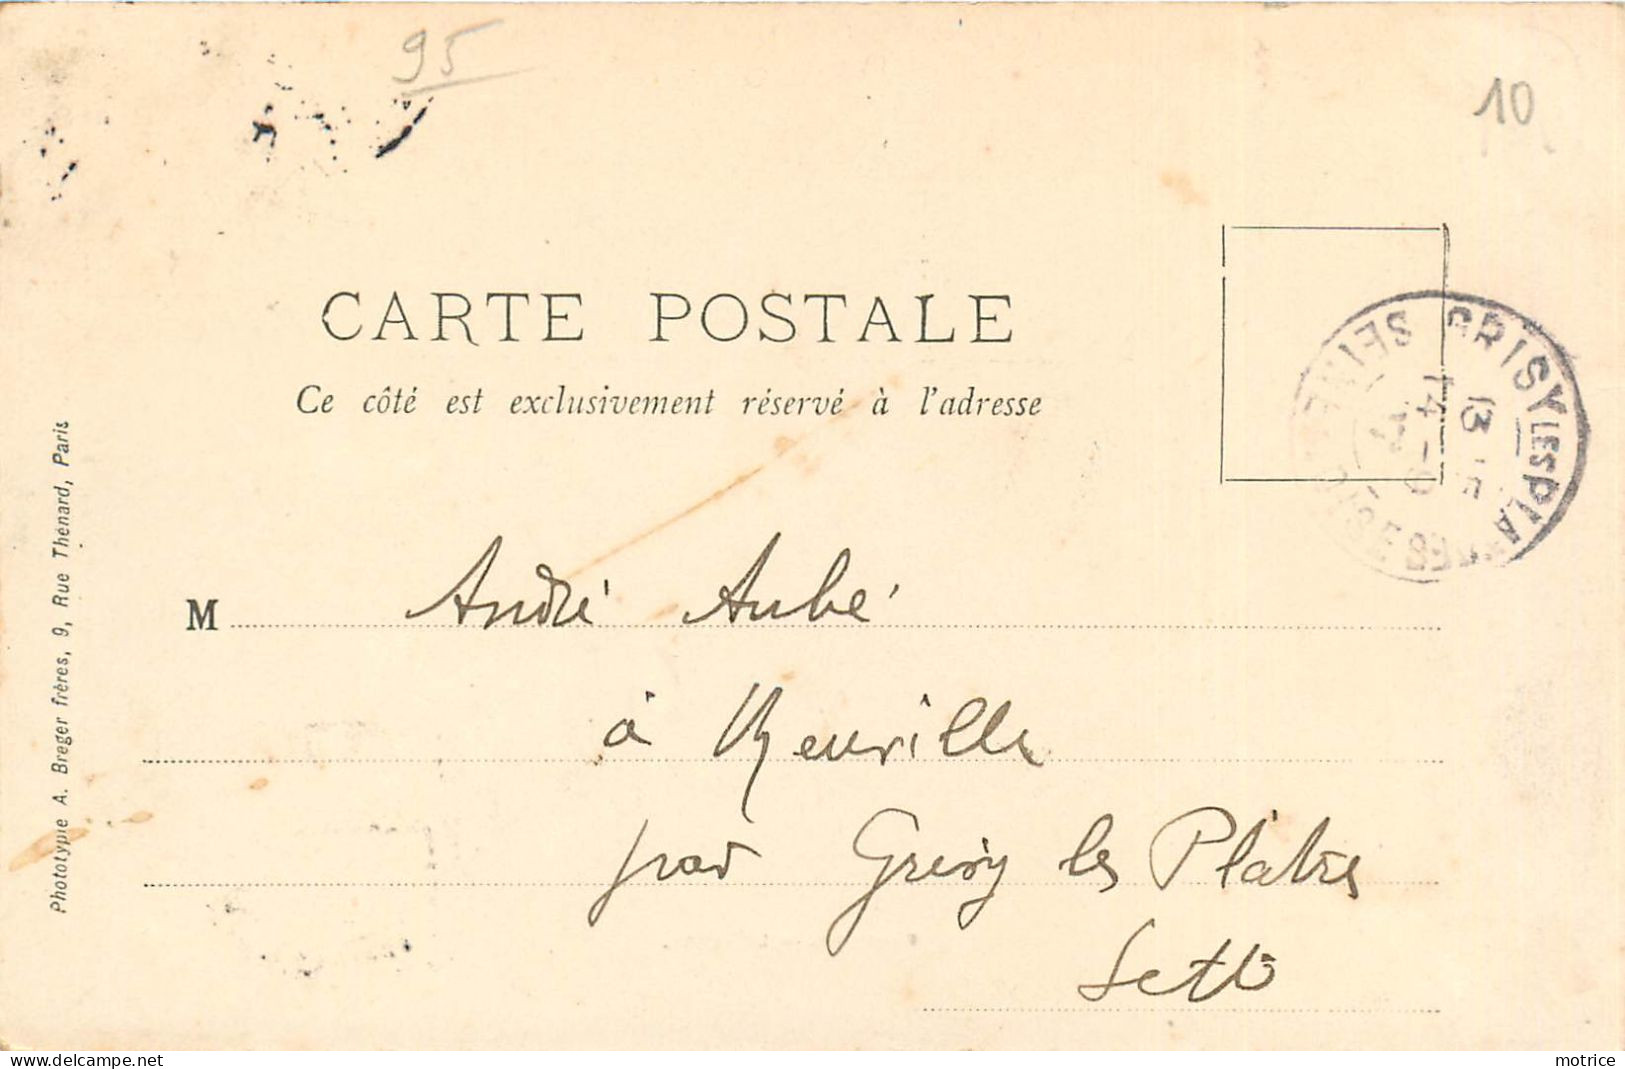 95
10
CARTE POSTALE
Ce côté est exclusivement réservé à l'adresse
GRISY LES PLATRES SEINE
13
14
M André Aubé
à
par Grisy les Plâtres
S et O
Phototypie A. Breger frères, 9, Rue Thénard, Paris
www.delcampe.net
motrice